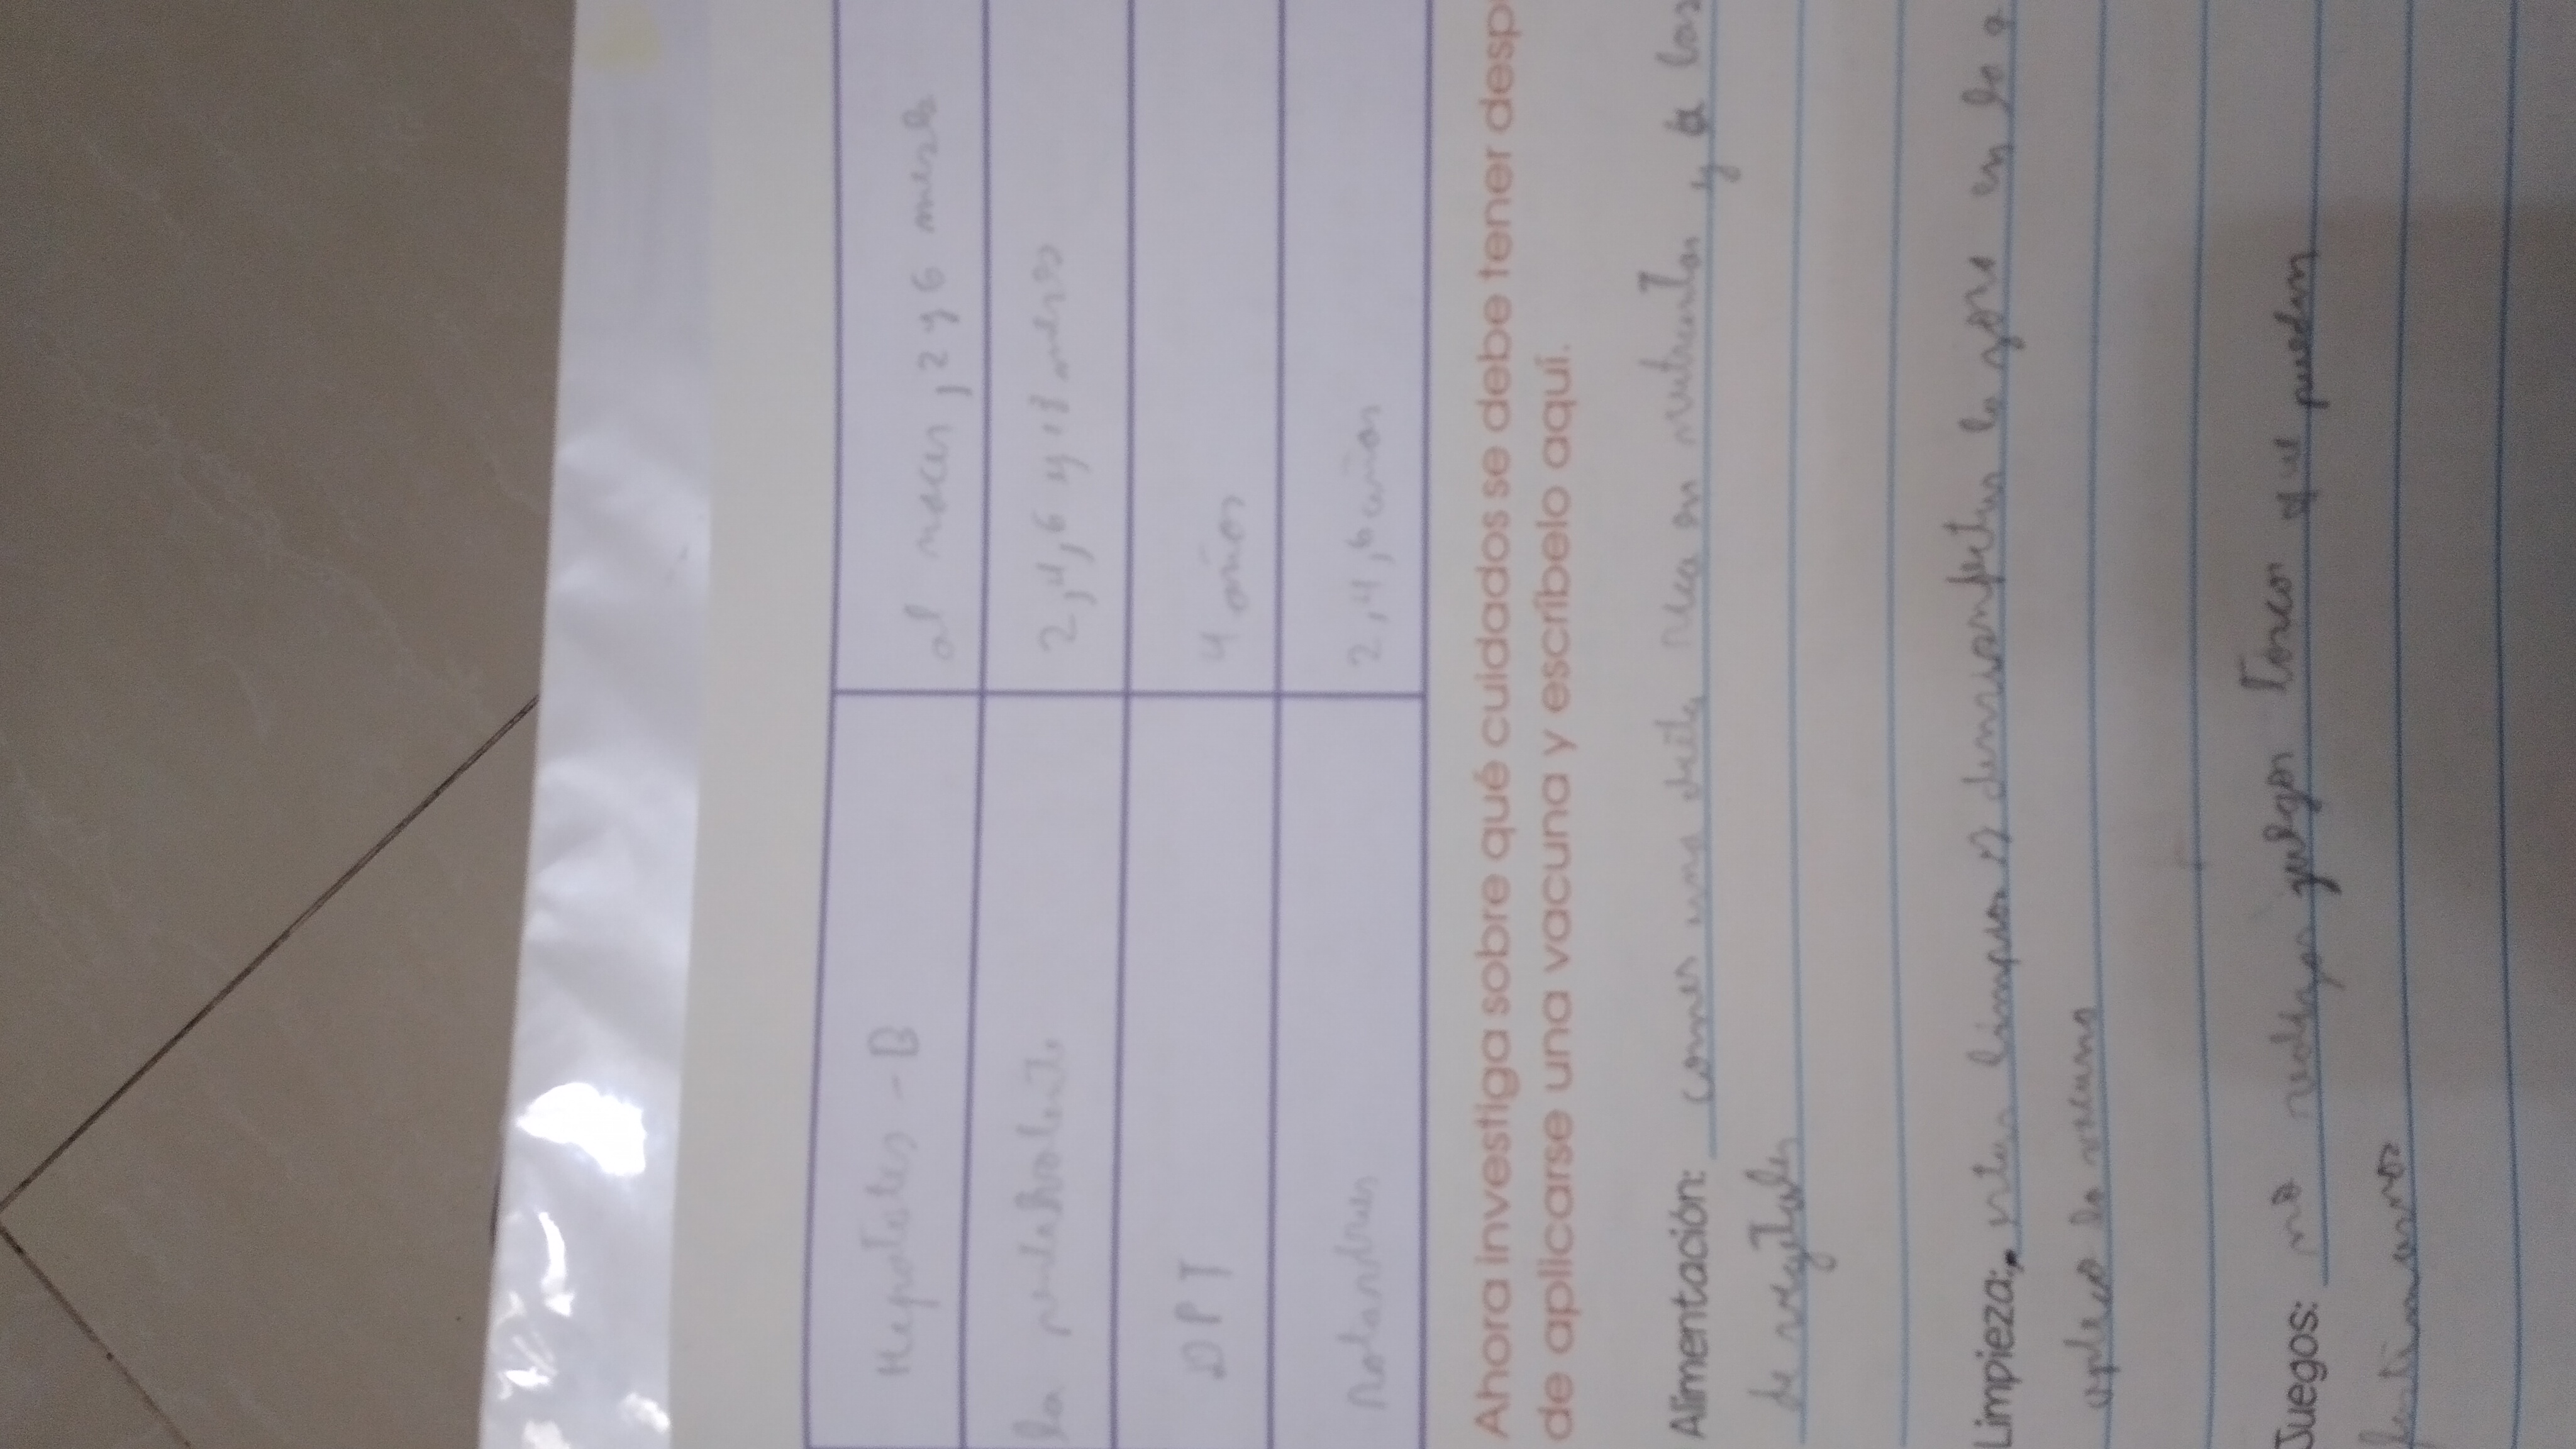 Hepatites - B
al nacer, 2 y 6 meses
la pentabalente
2,4,6 y 18 meses
DPT
4 años
Rotavirus
2,4,6 años
Ahora investiga sobre qué cuidados se debe tener desp
de aplicarse una vacuna y escríbelo aquí.
Alimentación: comer una dieta rica en nutrientes y a bas
de vegetales
Limpieza: estar limpios y la zona en la q
aplico la vacuna
Juegos: no juegos toscos que puedan
lastimarnos